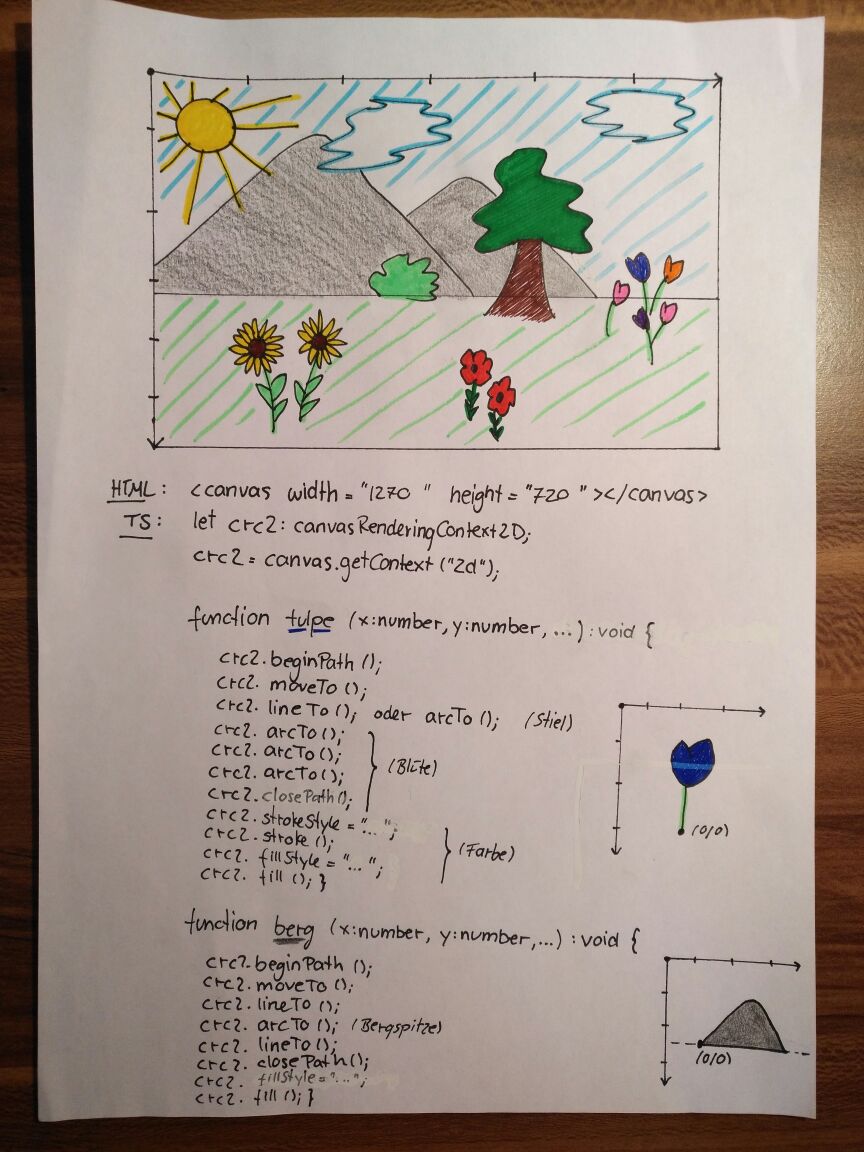 HTML: <canvas width = "1270 " height = "720 "></canvas>
TS: let crc2: canvasRenderingContext2D;
crc2 = canvas.getContext ("2d");
function tulpe (x:number, y:number, ...) : void {
crc2. beginPath ();
crc2. moveTo ();
crc2. lineTo (); oder arcTo (); (Stiel)
crc2. arcTo();
crc2. arcTo();
crc2. arcTo();
(Blüte)
crc2. closePath();
crc2. strokeStyle = "...";
crc2. stroke ();
crc2. fillStyle = "...";
(Farbe)
crc2. fill (); }
(0/0)
function berg (x:number, y:number,...) : void {
crc2. beginPath ();
crc2. moveTo ();
crc2. lineTo ();
crc2. arcTo (); (Bergspitze)
crc2. lineTo ();
crc2. closePath();
crc2. fillStyle = "...";
crc2. fill (); }
(0/0)